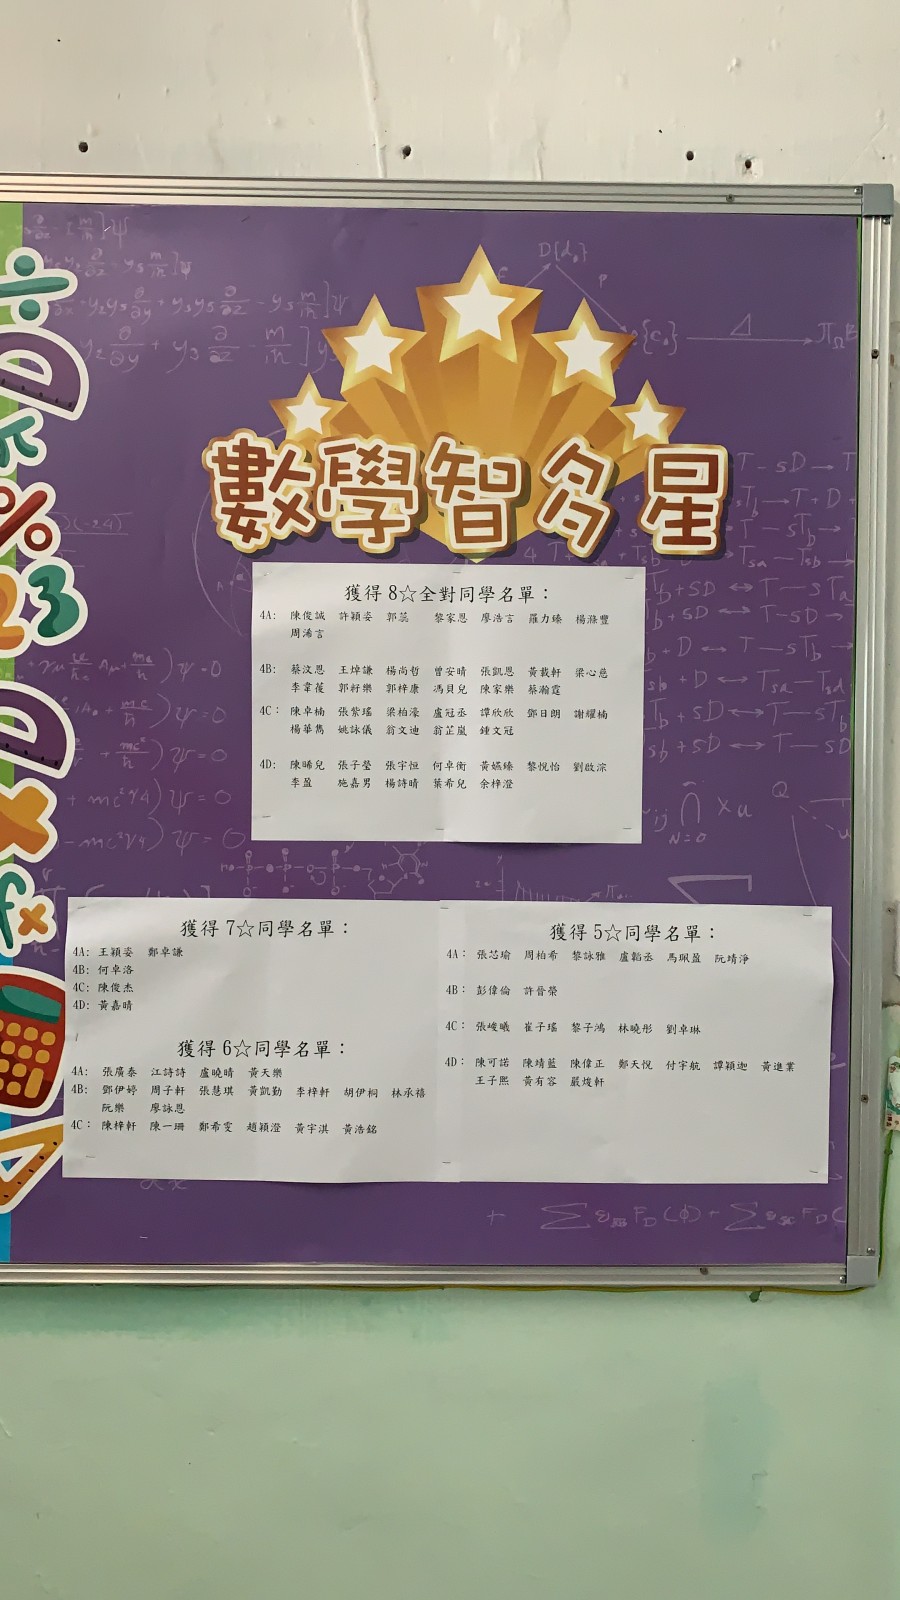 數學智多星
獲得 8☆全對同學名單：
4A: 陳俊誠 許穎姿 郭蕊 黎家恩 廖浩言 羅力臻 楊滌豐
周浠言
4B: 蔡汶恩 王焯謙 楊尚哲 曾安晴 張凱恩 黃載軒 梁心慈
李韋葰 郭好樂 郭梓康 馮貝兒 陳家樂 蔡瀚霆
4C： 陳卓楠 張紫瑤 梁柏濠 盧冠丞 譚欣欣 鄧日朗 謝耀楠
楊華雋 姚詠儀 翁文迪 翁芷嵐 鍾文冠
4D: 陳晞兒 張子瑩 張宇恒 何卓衡 黃嬿臻 黎悅怡 劉啟淙
李盈 施嘉男 楊詩晴 葉希兒 余梓澄
獲得 7☆同學名單：
4A: 王穎姿 鄭卓謙
4B: 何卓洛
4C: 陳俊杰
4D: 黃嘉晴
獲得 6☆同學名單：
4A: 張廣泰 江詩詩 盧曉晴 黃天樂
4B: 鄧伊婷 周子軒 張慧琪 黃凱勤 李梓軒 胡伊桐 林承禧
阮樂 廖詠恩
4C： 陳梓軒 陳一珊 鄭希雯 趙穎澄 黃宇淇 黃浩銘
獲得 5☆同學名單：
4A： 張芯瑜 周柏希 黎詠雅 盧韜丞 馬珮盈 阮靖淨
4B： 彭偉倫 許晉榮
4C： 張峻曦 崔子瑤 黎子鴻 林曉彤 劉卓琳
4D： 陳可諾 陳靖藍 陳偉正 鄭天悅 付宇航 譚穎迦 黃進業
王子熙 黃有容 嚴焌軒